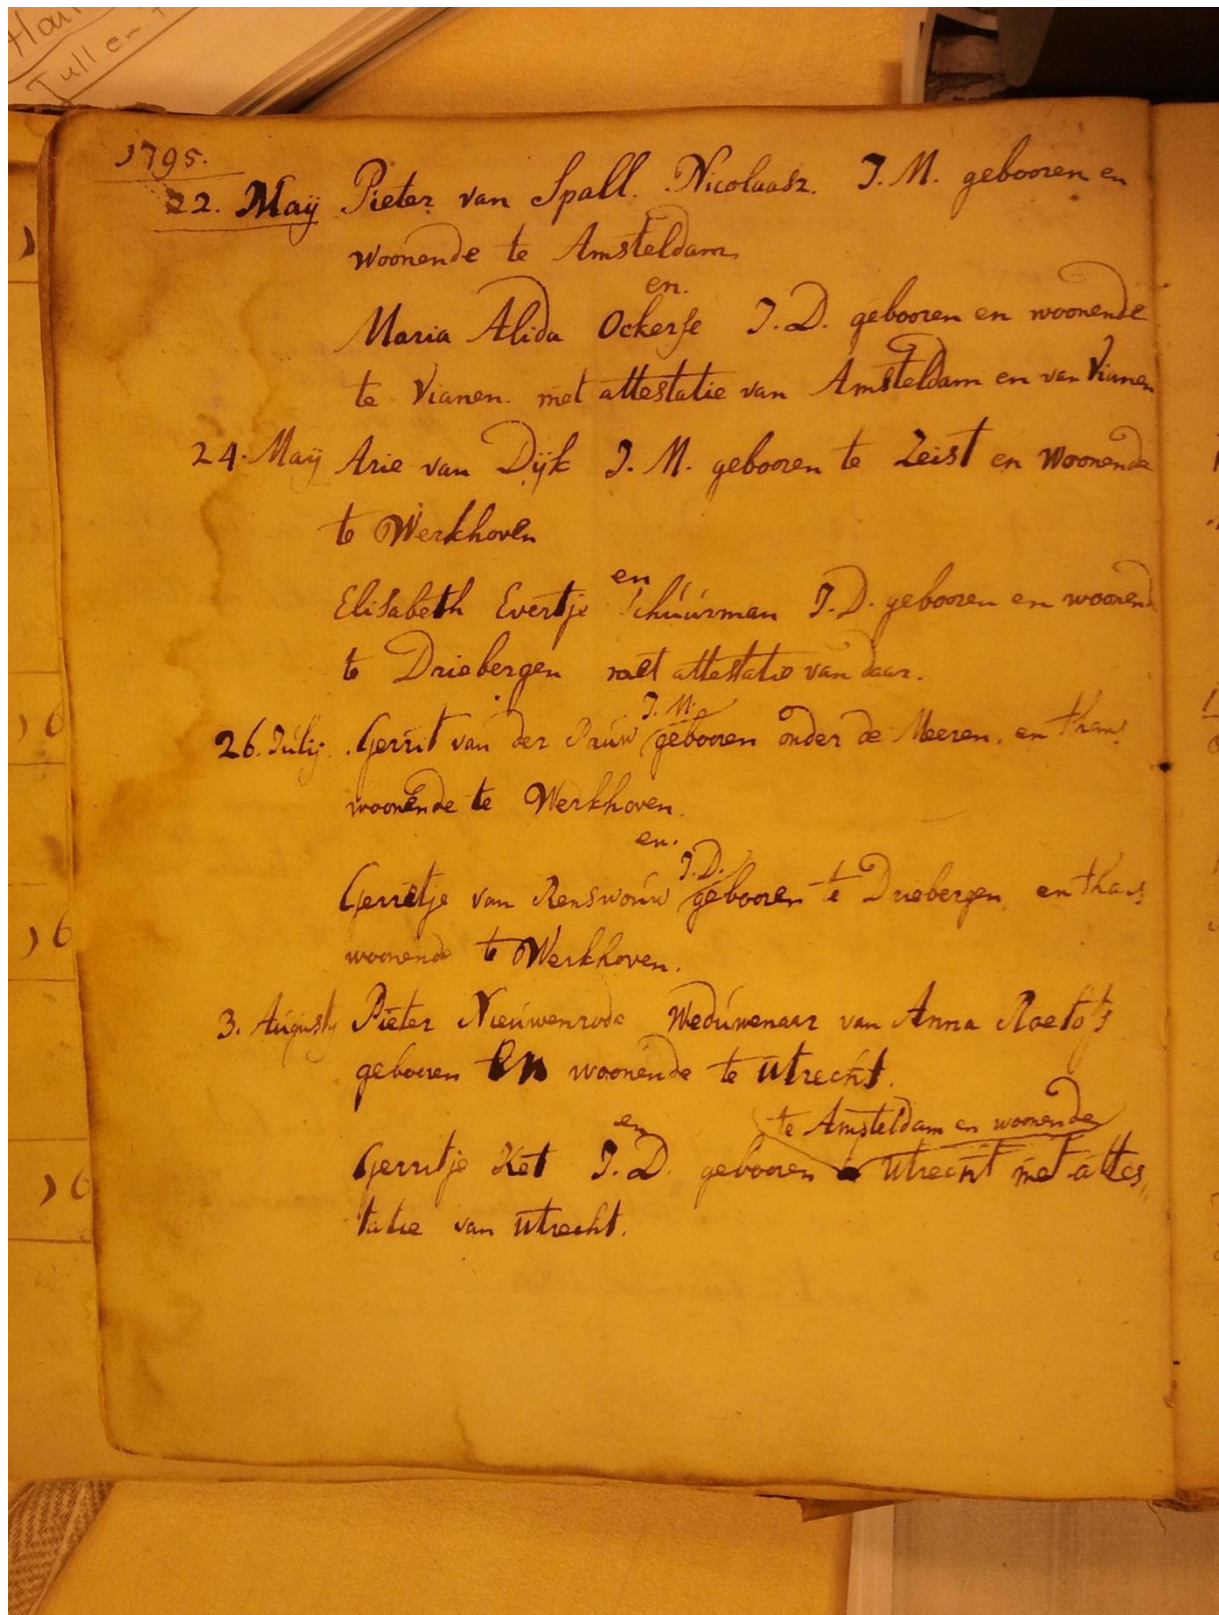 Tull en
1795.
22. Maÿ Pieter van Spall. Nicolaasz. J.M. gebooren en
woonende te Amsteldam
en.
Maria Alida Ockerse J.D. gebooren en woonende
te Vianen. met attestatie van Amsteldam en van Vianen
24. Maÿ Arie van Dÿk J.M. gebooren te Zeist en woonende
te Werkhoven
en
Elisabeth Evertje Schuurman J.D. gebooren en woonend
te Driebergen met attestatie van daar.
J.M.
26. Julij. Gerrit van der Pauw gebooren onder de Meeren, en thans
woonende te Werkhoven.
en.
J.D.
Gerretje van Renswouw gebooren te Driebergen, en thans
woonende te Werkhoven.
3. Augusty Pieter Nieuwenrode Weduwenaar van Anna
gebooren en woonende te Utrecht.
en te Amsteldam en woonende
Gerritje Ket J.D. gebooren te Utrecht met attes,,
tatie van Utrecht.